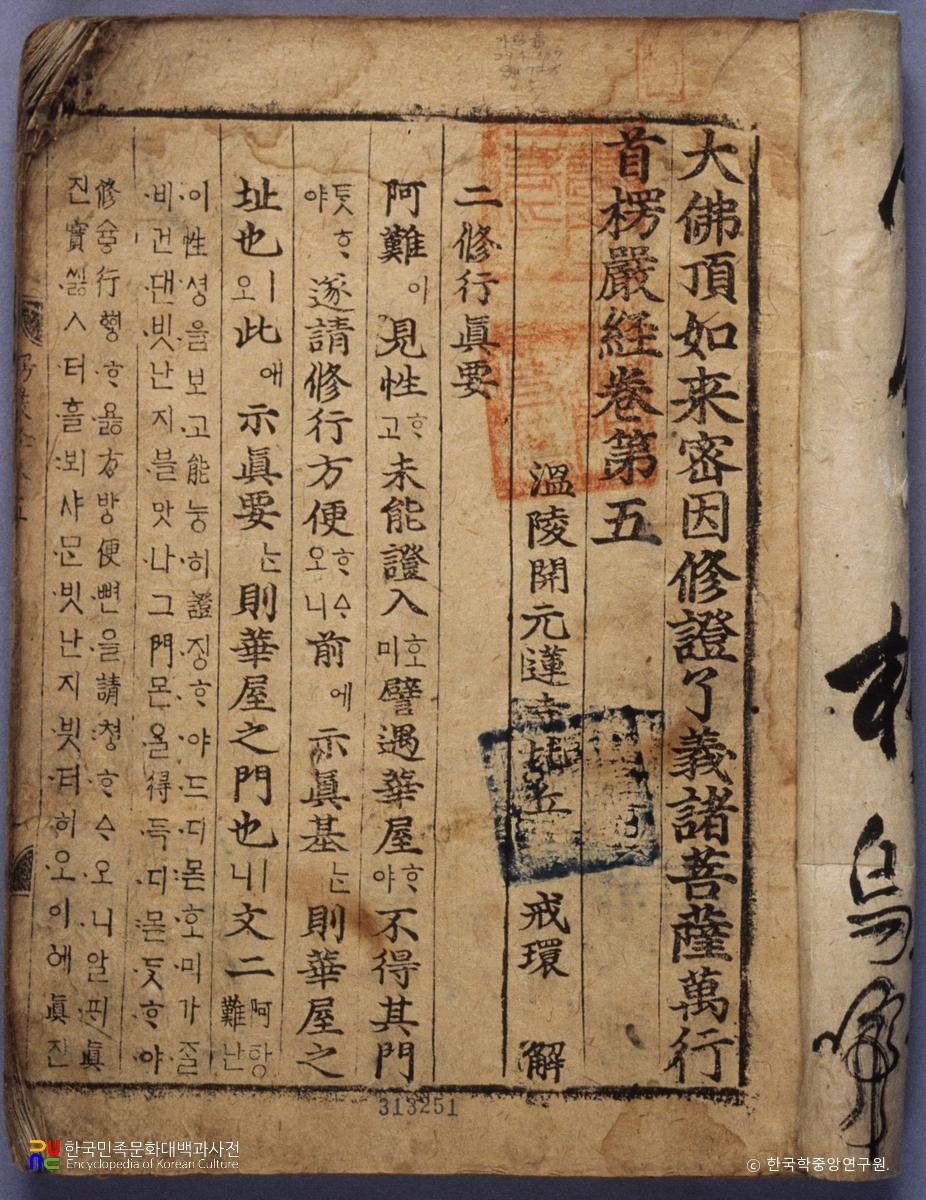 大佛頂如来密因修證了義諸菩薩萬行
首楞嚴経卷第五
溫陵開元蓮寺比丘 戒環 解
二修行眞要
阿難이見性ᄒᆞ고未能證入호미譬遇華屋ᄒᆞ야不得其門
ᄃᆞᆺᄒᆞ야遂請修行方便ᄒᆞᅀᆞ오니前에示眞基ᄂᆞᆫ則華屋之
址也ㅣ오此애示眞要ᄂᆞᆫ則華屋之門也ㅣ니文二 阿항難난
이性셩을보고能능히證징ᄒᆞ야드디몯호미가ᄌᆞᆯ
비건댄빗난지블맛나그門몬ᄋᆞᆯ得득디몯ᄃᆞᆺᄒᆞ야
修슈ᇢ行ᄒᆡᇰᄒᆞ욣方방便뼌을請쳥ᄒᆞᅀᆞ오니알ᄑᆡ眞
진實씷ㅅ터흘뵈샤ᄆᆞᆫ빗난지븻터히오이ᅌᅦ眞진
313251
한국민족문화대백과사전
Encyclopedia of Korean Culture
© 한국학중앙연구원.